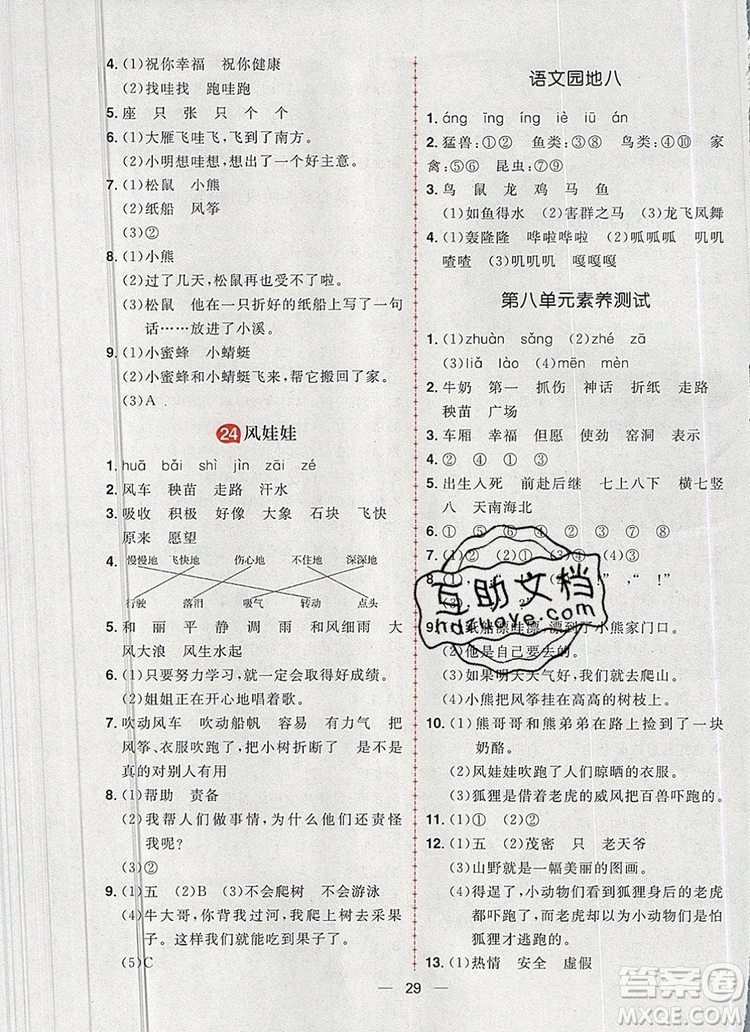 4. (1)祝你幸福 祝你健康
(2)找哇找 跑哇跑
5. 座 只 张 只 个 个
6. (1)大雁飞哇飞,飞到了南方。
(2)小明想哇想,想出了一个好主意。
7. (1)松鼠 小熊
(2)纸船 风筝
(3)②
8. (1)小熊
(2)过了几天,松鼠再也受不了啦。
(3)松鼠 他在一只折好的纸船上写了一句
话……放进了小溪。
9. (1)小蜜蜂 小蜻蜓
(2)小蜜蜂和小蜻蜓飞来,帮它搬回了家。
(3)A
24 风娃娃
1. huā bǎi shì jìn zāi zé
2. 风车 秧苗 走路 汗水
3. 吸收 积极 好像 大象 石块 快乐
原来 愿望
4. 慢慢地 飞快地 伤心地 不住地 深深地
行驶 落泪 吸气 转动 点头
5. 和 丽 平 静 调 雨 和风细雨 大
风大浪 风生水起
6. (1)只要努力学习,就能取得好成绩。
(2)姐姐正在开心地唱着歌。
7. 吹动风车 吹动船帆 容易 有力气 把
风筝、衣服吹跑了 把小树折断了 是
真的对别人有用
8. (1)帮助 责备
(2)我帮人们做事情,为什么他们还责怪
我呢?
(3)②
9. (1)五 (2)B (3)不会爬树 不会游泳
(4)牛大哥,你背我过河,我爬上树去采果
子。这样我们就能吃到果子了。
(5)C
语文园地八
1. áng īng íng iè iū án
2. 猛兽:①② 鱼类:③⑧ 鸟类:④⑩ 家
禽:⑤⑥ 昆虫:⑦⑨
3. 鸟 鼠 龙 鸡 马 鱼
(1)如鱼得水 (2)害群之马 (3)龙飞凤舞
4. (1)轰隆隆 哗啦哗啦 (2)呱呱呱 叽叽
喳喳 (3)叽叽叽 嘎嘎嘎
第八单元素养测试
1. (1)zhuàn sǎng (2)zhé zā
(3)liǎ lào (4)mēn mèn
2. 牛奶 第一 抓伤 神话 折纸 走路
秧苗 广场
3. 车厢 幸福 但愿 使劲 窑洞 表示
4. ② ④ ① ③
5. 出生入死 前赴后继 七上八下 横七竖
八 天南海北
6. ① ⑤ ② ④ ③ ⑥
7. (1)②
8.
9. (1)纸船漂哇漂,漂到了小熊家门口。
(2)他是自己要去的。
(3)如果明天天气好,我们就去爬山。
(4)小熊把风筝挂在高高的树枝上。
10. (1)熊哥哥和熊弟弟在路上捡到了一块
奶酪。
(2)风娃娃吹跑了人们晾晒的衣服。
(3)狐狸借着老虎的威风把百兽吓跑了。
11. (1)① (2)②
12. (1)五 (2)茂密 只 老天爷
(3)山野就是一幅美丽的图画。
(4)得逞了,小动物们看到狐狸身后的老虎
都吓坏了,它们是因为害怕老虎而不是
狐狸才逃跑的。
13. (1)热情 安全 虚假
29
互助文档
hdzuoye.com
答案圈
MXQE.COM